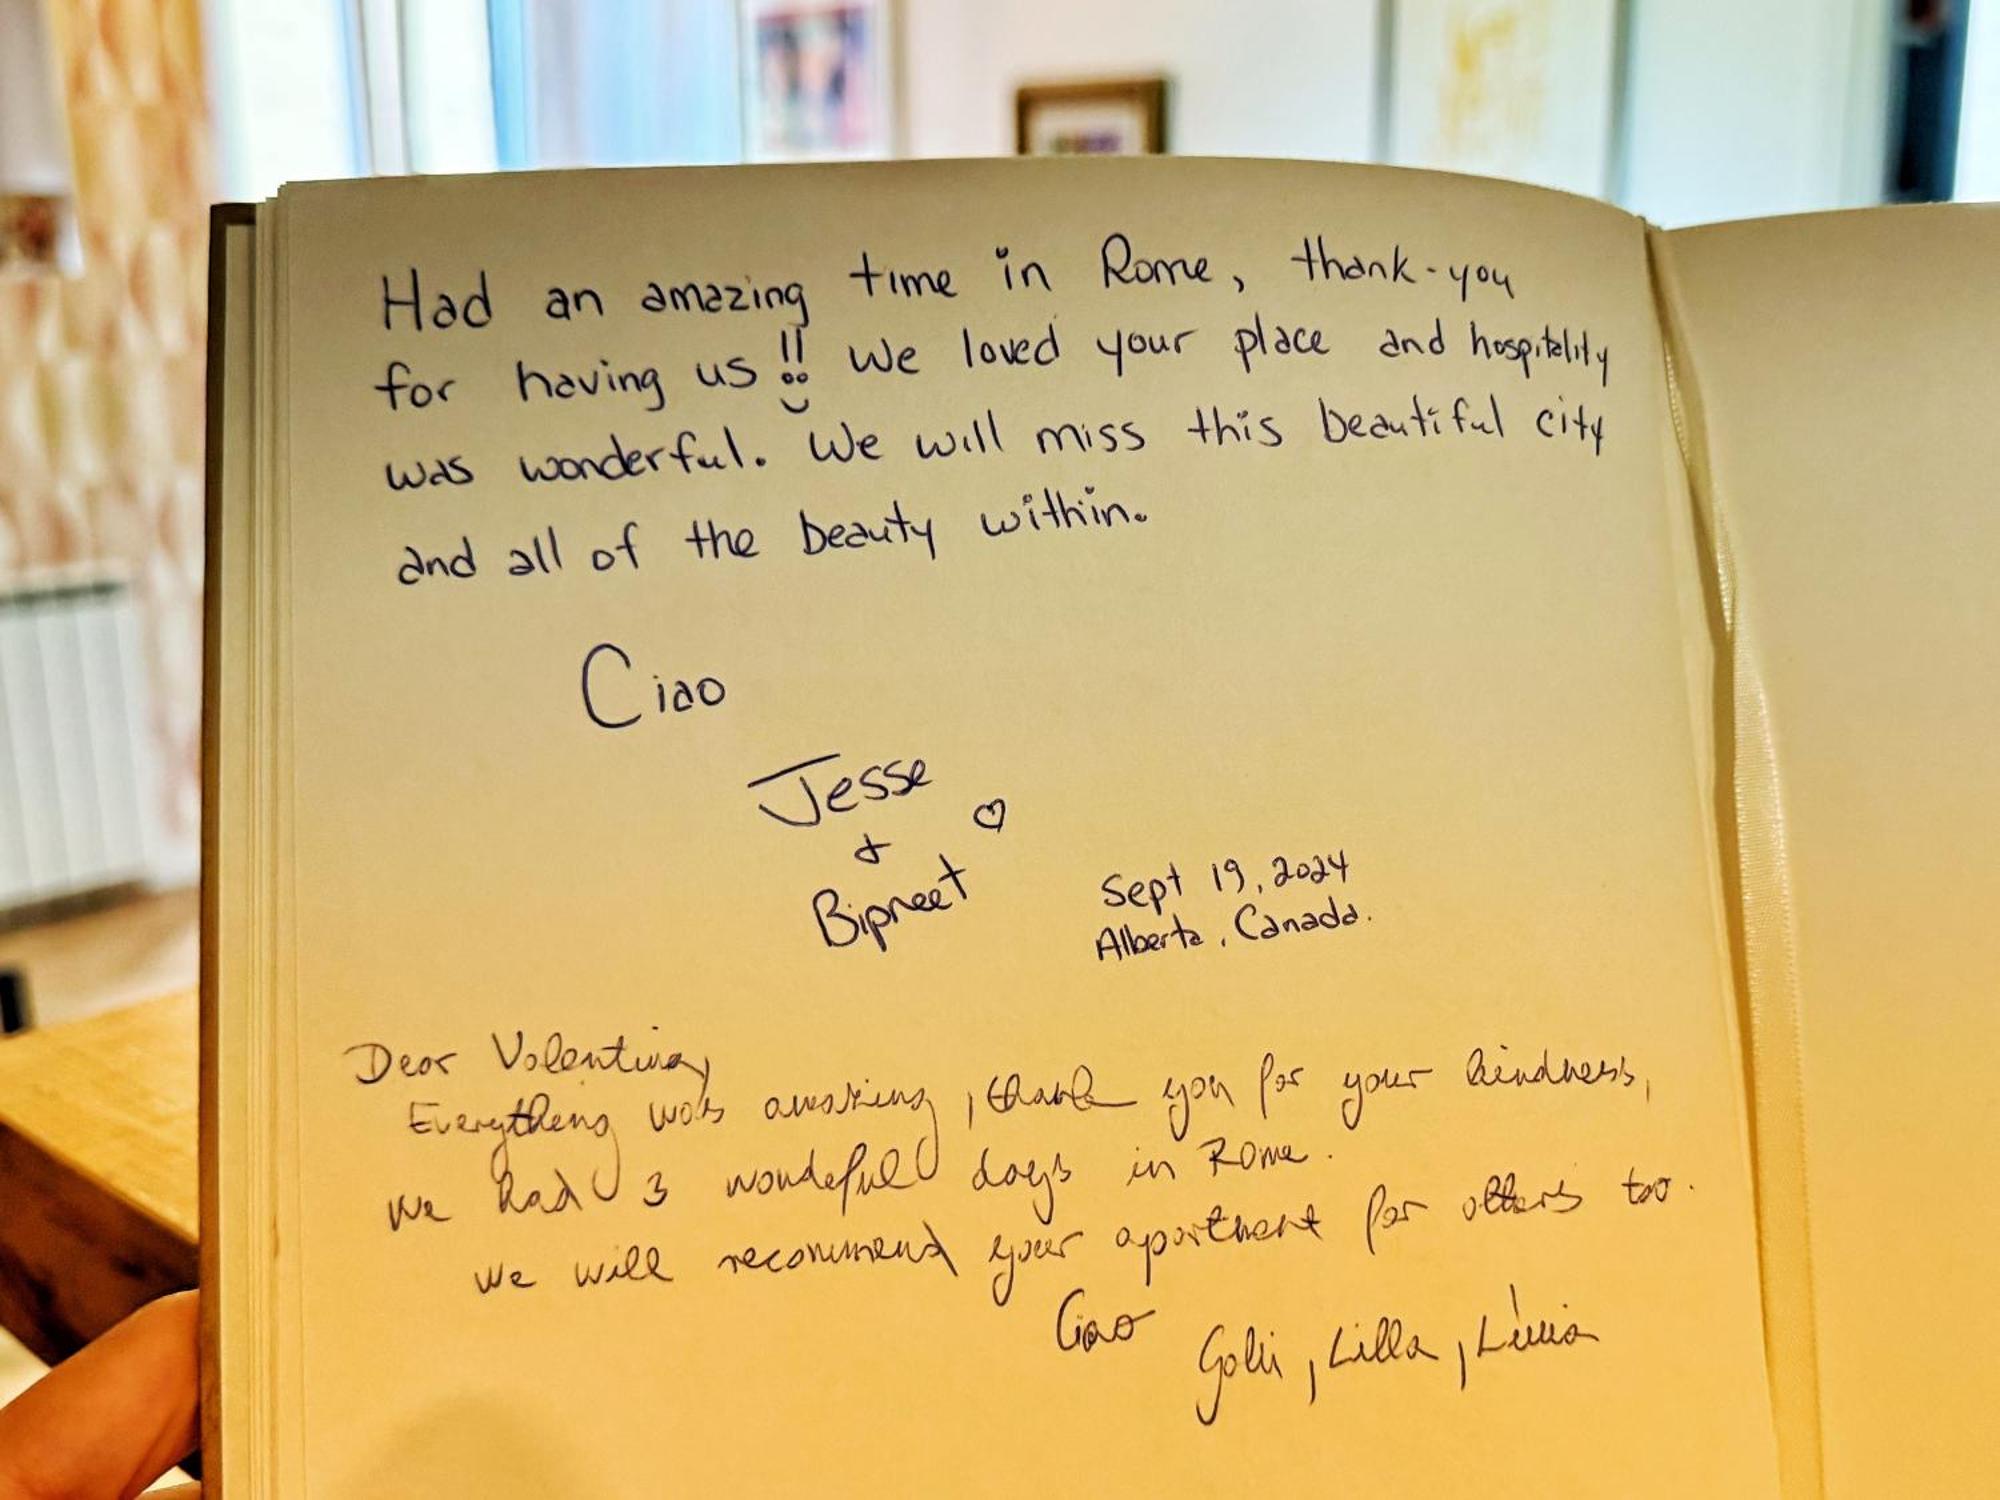 Had an amazing time in Rome, thank-you
for having us!! We loved your place and hospitality
was wonderful. We will miss this beautiful city
and all of the beauty within.
Ciao
Jesse
+
Bipneet ♡
Sept 19, 2024
Alberta, Canada.
Dear Valentina,
Everything was amazing, thank you for your kindness,
We had 3 wondeful days in Rome.
We will recommend your apartment for others too.
Ciao
Lilla,